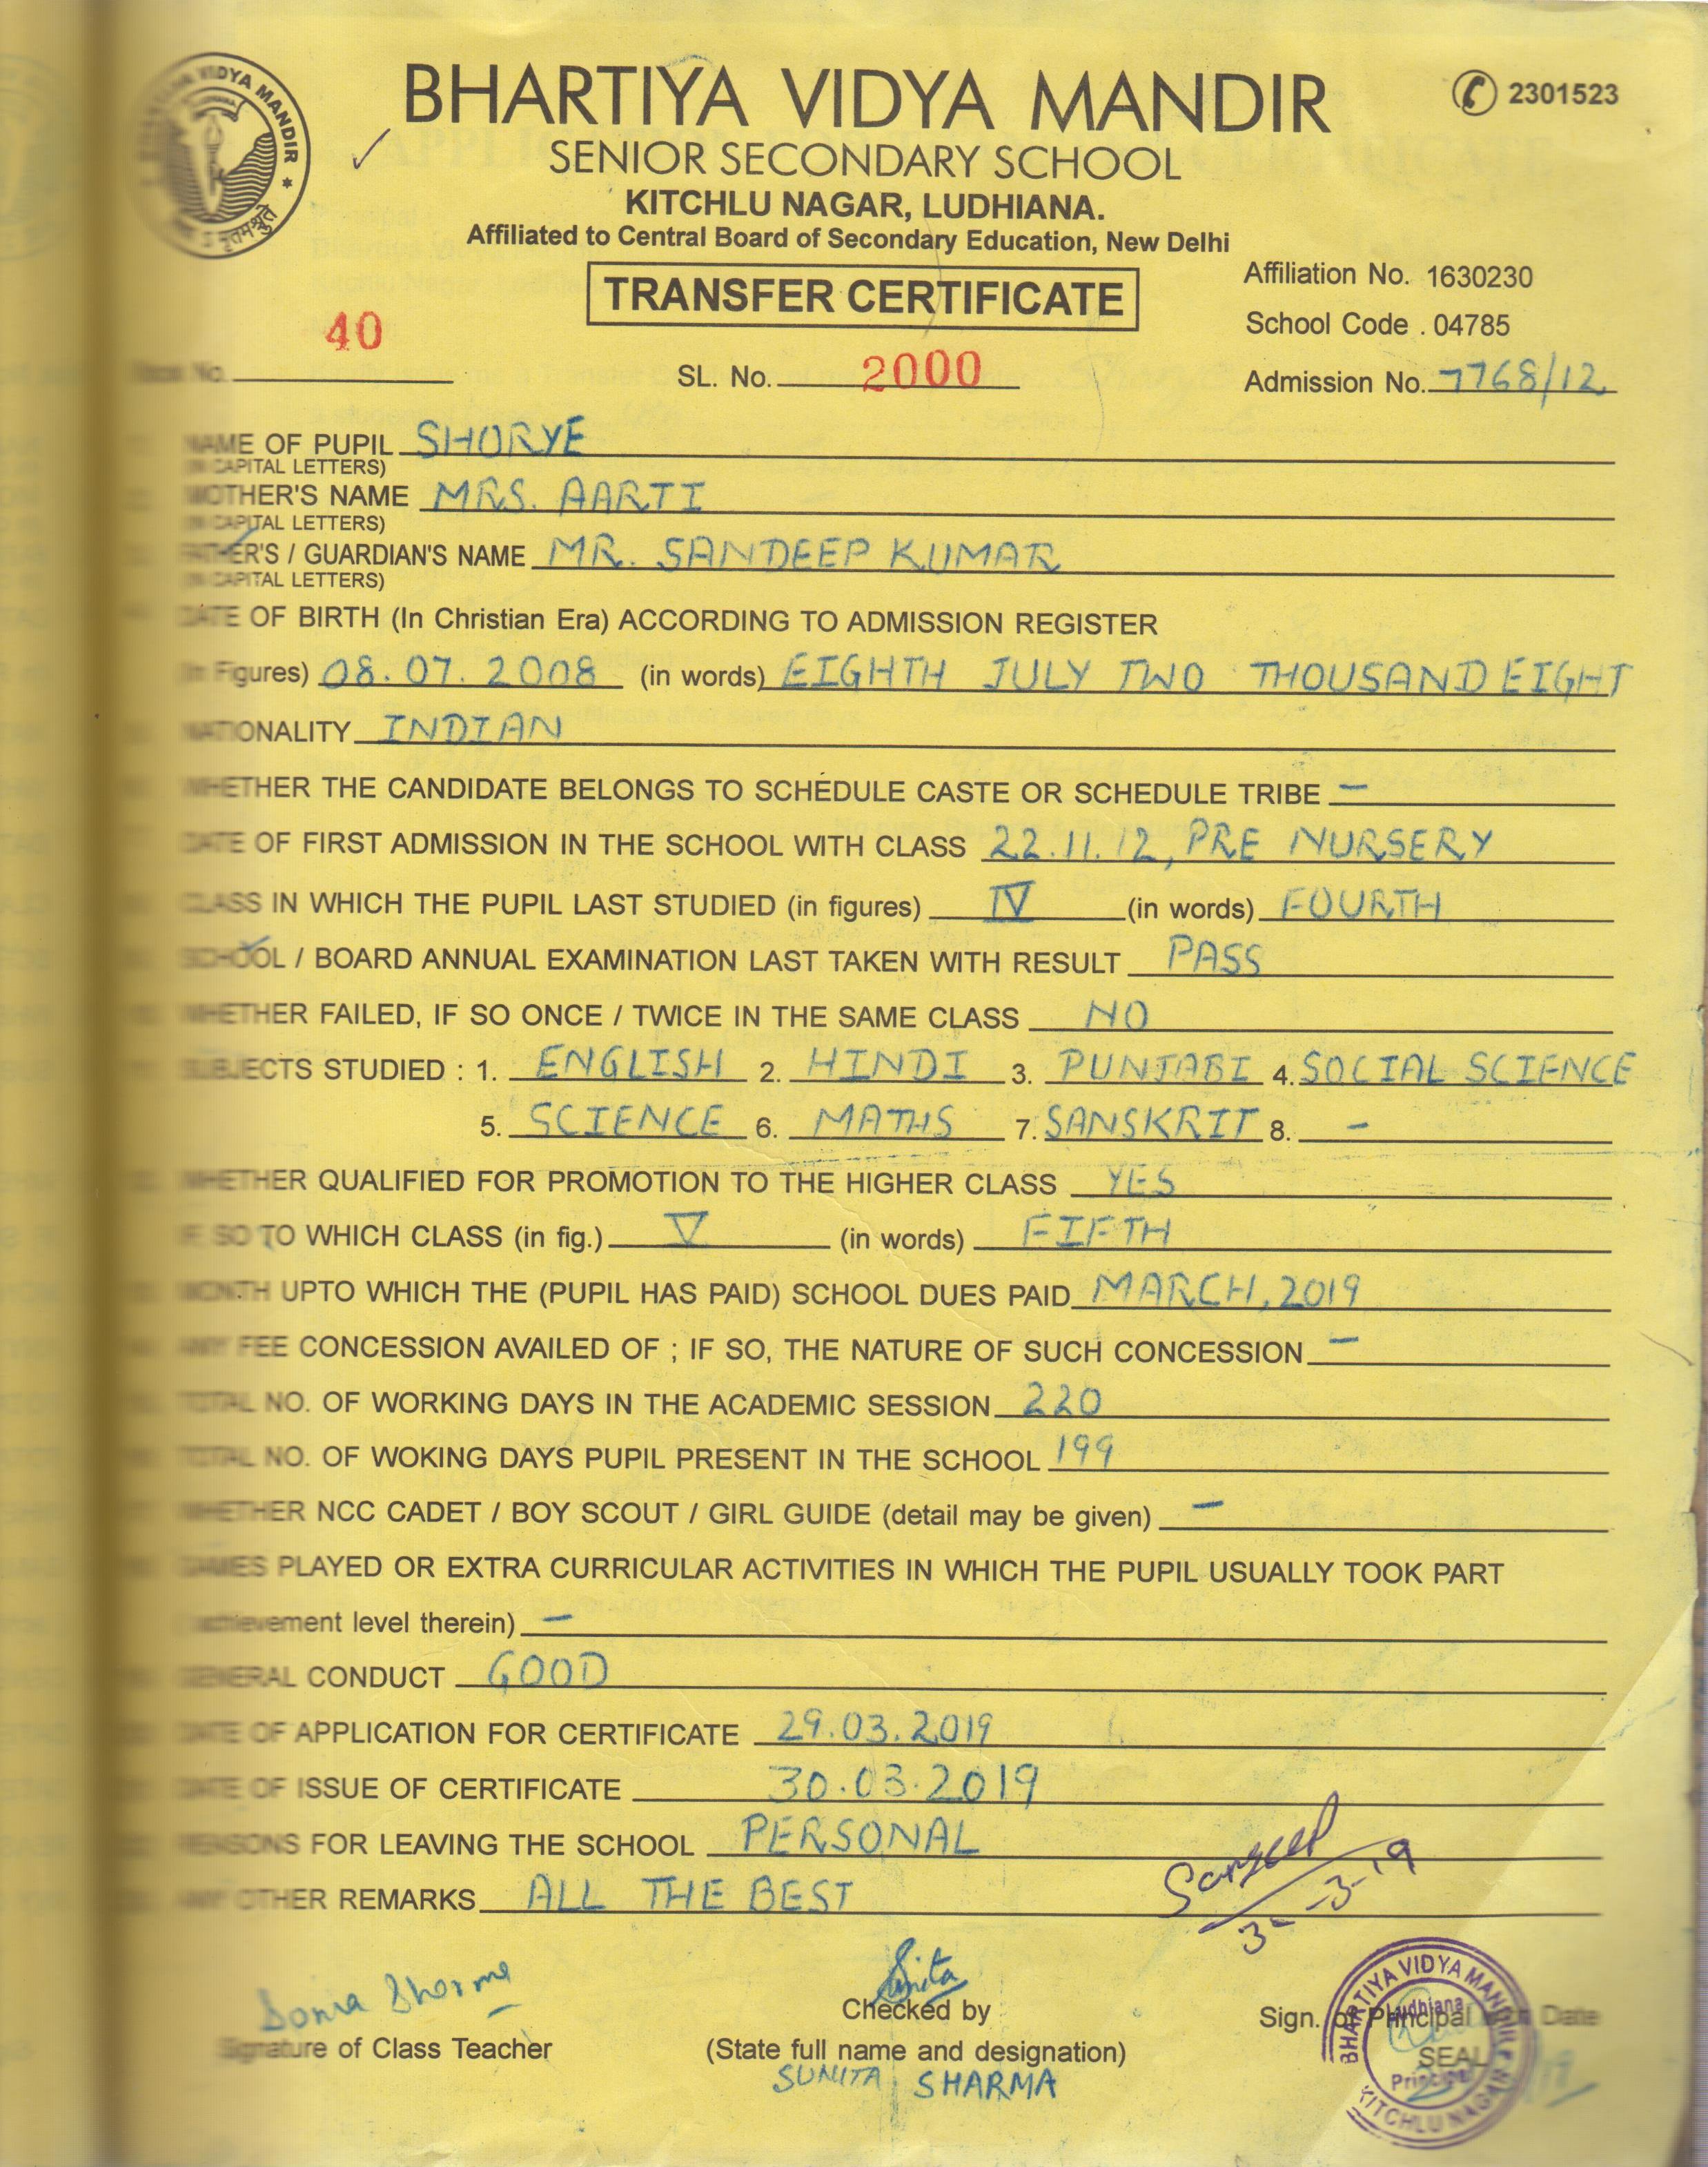 BHARTIYA VIDYA MANDIR
2301523
SENIOR SECONDARY SCHOOL
KITCHLU NAGAR, LUDHIANA.
Affiliated to Central Board of Secondary Education, New Delhi
VIDYA MANDIR
TRANSFER CERTIFICATE
Affiliation No. 1630230
School Code . 04785
No. 40 SL. No. 2000 Admission No. 7768/12
NAME OF PUPIL SHORYE
(IN CAPITAL LETTERS)
MOTHER'S NAME MRS. AARTI
(IN CAPITAL LETTERS)
FATHER'S / GUARDIAN'S NAME MR. SANDEEP KUMAR
(IN CAPITAL LETTERS)
DATE OF BIRTH (In Christian Era) ACCORDING TO ADMISSION REGISTER
(In Figures) 08.07.2008 (in words) EIGHTH JULY TWO THOUSAND EIGHT
NATIONALITY INDIAN
WHETHER THE CANDIDATE BELONGS TO SCHEDULE CASTE OR SCHEDULE TRIBE –
DATE OF FIRST ADMISSION IN THE SCHOOL WITH CLASS 22.11.12, PRE NURSERY
CLASS IN WHICH THE PUPIL LAST STUDIED (in figures) IV (in words) FOURTH
SCHOOL / BOARD ANNUAL EXAMINATION LAST TAKEN WITH RESULT PASS
WHETHER FAILED, IF SO ONCE / TWICE IN THE SAME CLASS NO
SUBJECTS STUDIED : 1. ENGLISH 2. HINDI 3. PUNJABI 4. SOCIAL SCIENCE
5. SCIENCE 6. MATHS 7. SANSKRIT 8. –
WHETHER QUALIFIED FOR PROMOTION TO THE HIGHER CLASS YES
IF SO TO WHICH CLASS (in fig.) V (in words) FIFTH
MONTH UPTO WHICH THE (PUPIL HAS PAID) SCHOOL DUES PAID MARCH, 2019
ANY FEE CONCESSION AVAILED OF ; IF SO, THE NATURE OF SUCH CONCESSION –
TOTAL NO. OF WORKING DAYS IN THE ACADEMIC SESSION 220
TOTAL NO. OF WOKING DAYS PUPIL PRESENT IN THE SCHOOL 199
WHETHER NCC CADET / BOY SCOUT / GIRL GUIDE (detail may be given) –
GAMES PLAYED OR EXTRA CURRICULAR ACTIVITIES IN WHICH THE PUPIL USUALLY TOOK PART
(achievement level therein) –
GENERAL CONDUCT GOOD
DATE OF APPLICATION FOR CERTIFICATE 29.03.2019
DATE OF ISSUE OF CERTIFICATE 30.03.2019
REASONS FOR LEAVING THE SCHOOL PERSONAL
ANY OTHER REMARKS ALL THE BEST
Sonia Sharma
Signature of Class Teacher
Sunita
Checked by
(State full name and designation)
SUNITA SHARMA
Sign. of Principal with Date
SEAL
BHARTIYA VIDYA MANDIR
Ludhiana
Principal
KITCHLU NAGAR